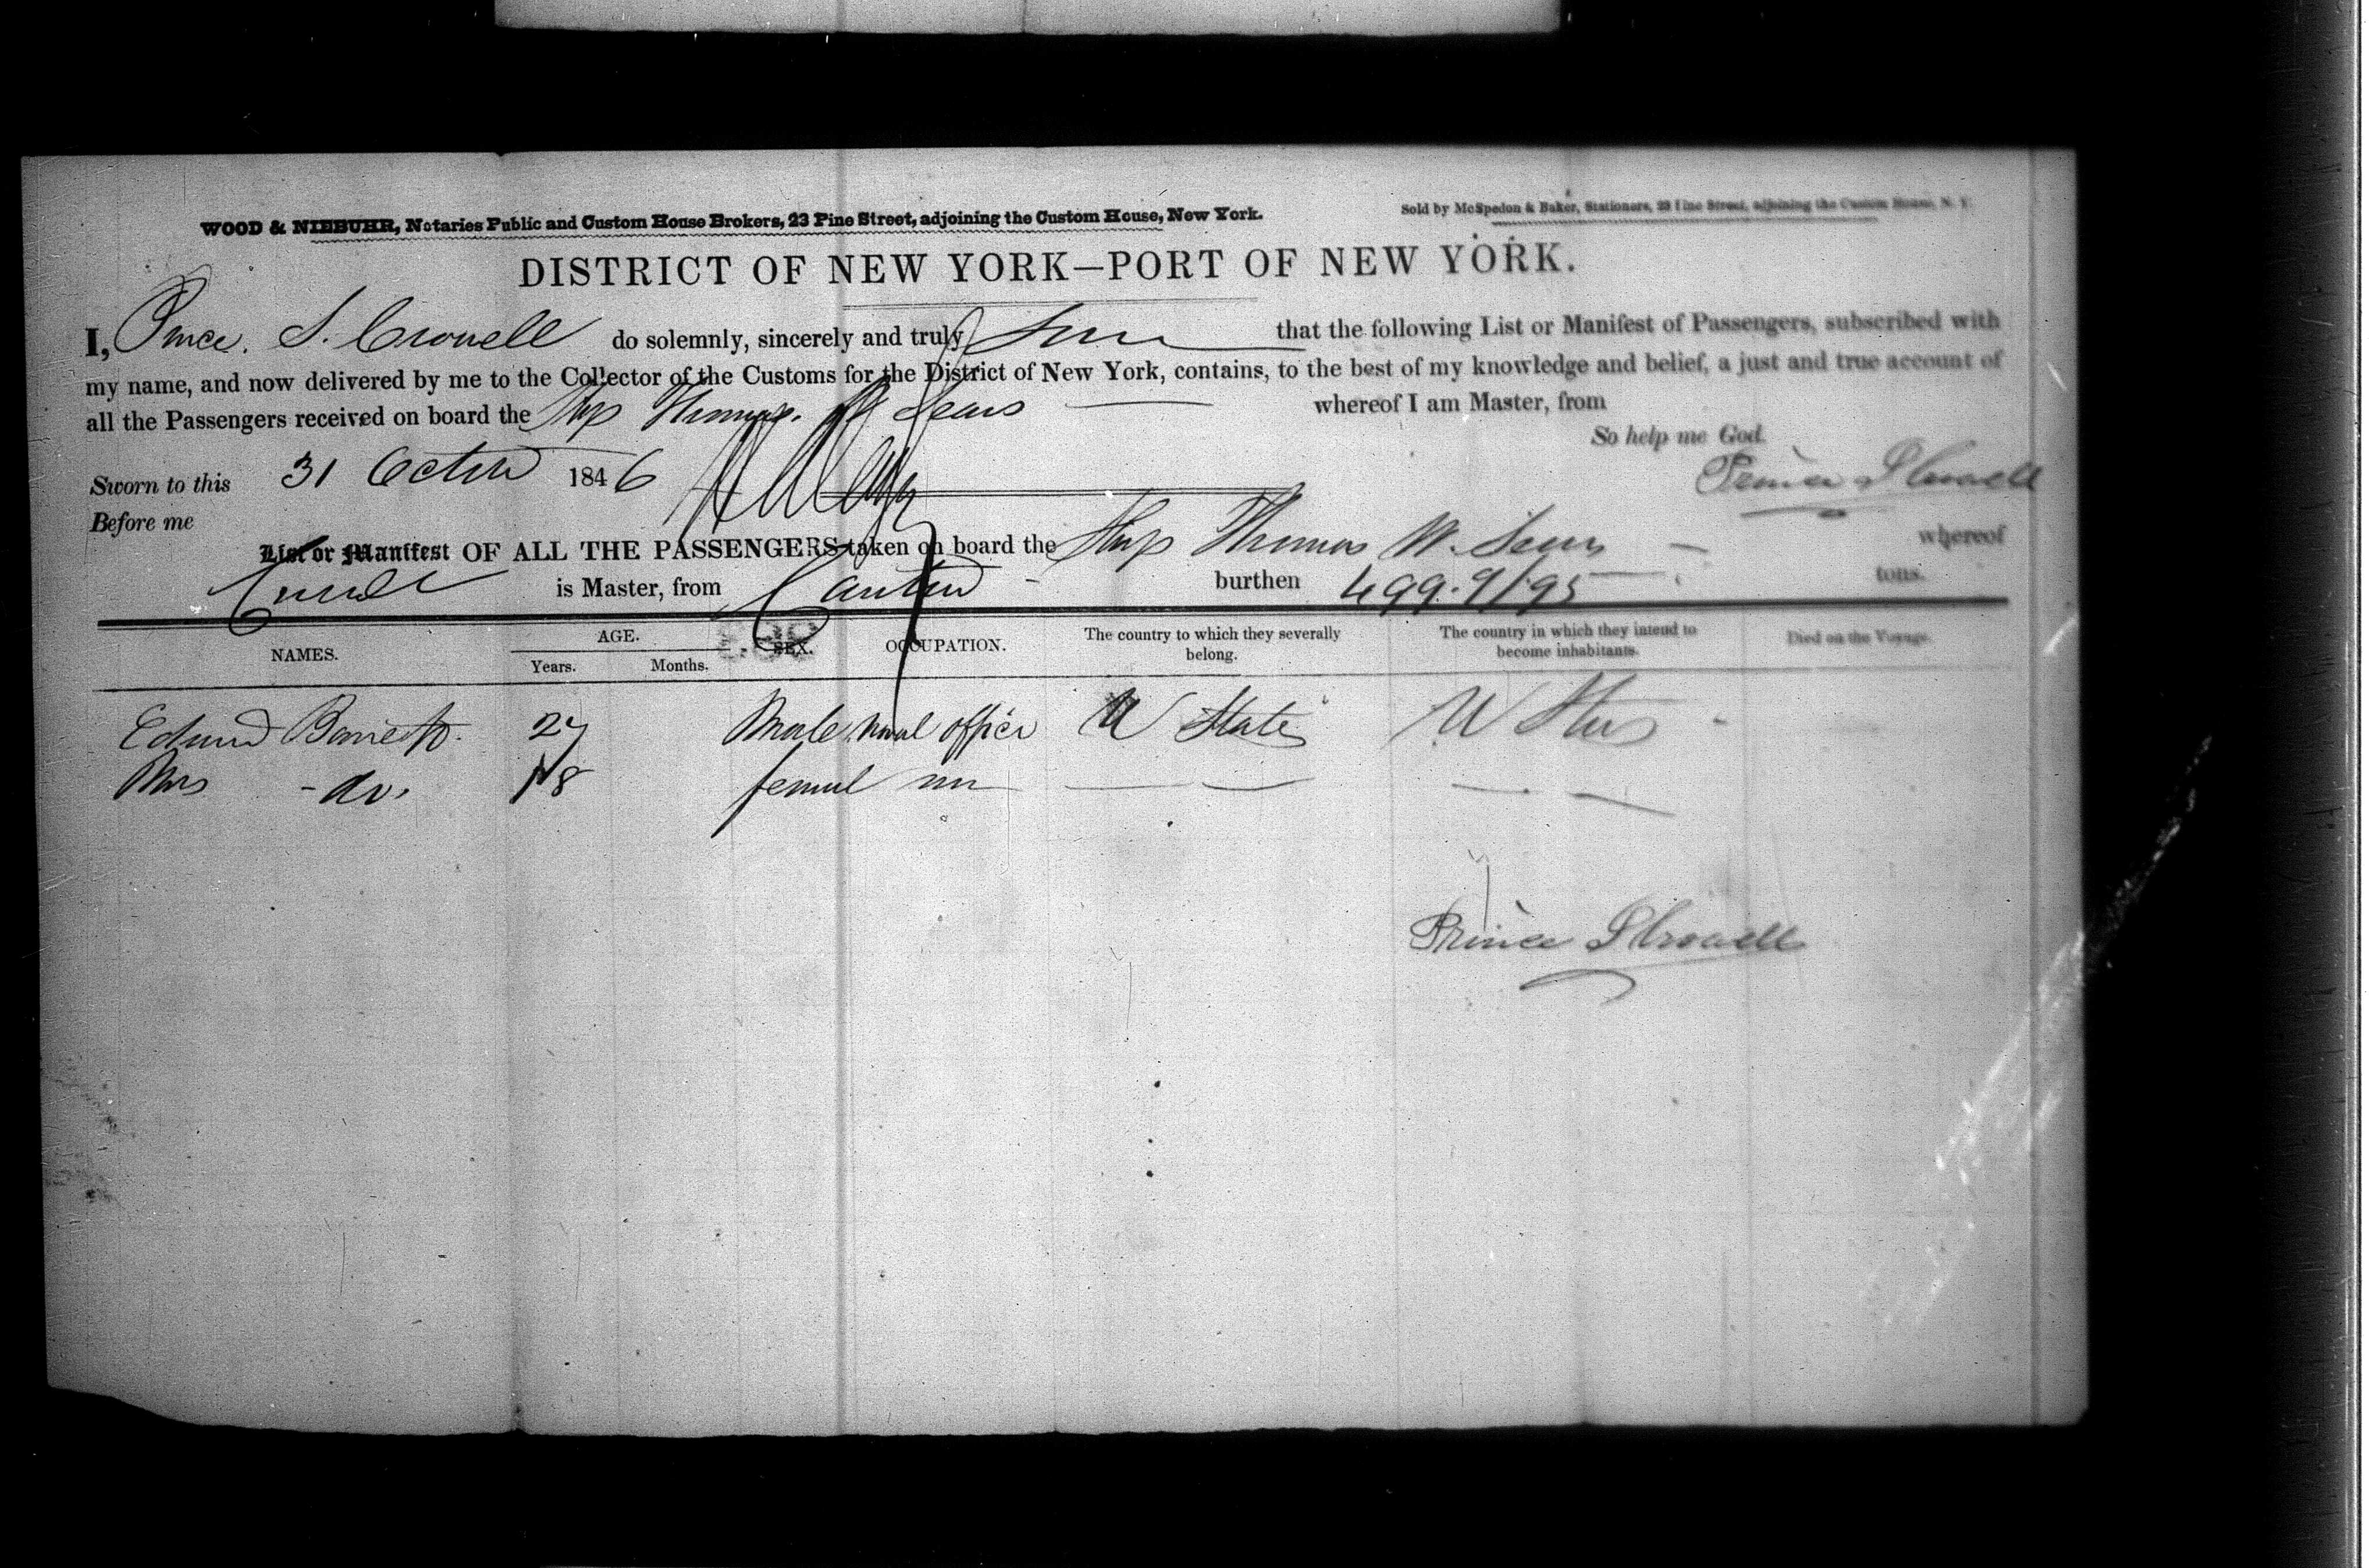 WOOD & NIEBUHR, Notaries Public and Custom House Brokers, 23 Pine Street, adjoining the Custom House, New York.
Sold by McSpedon & Baker, Stationers, 23 Pine Street, adjoining the Custom House, N. Y.
DISTRICT OF NEW YORK—PORT OF NEW YORK.
I, Prince. S. Crowell do solemnly, sincerely and truly that the following List or Manifest of Passengers, subscribed with
my name, and now delivered by me to the Collector of the Customs for the District of New York, contains, to the best of my knowledge and belief, a just and true account of
all the Passengers received on board the Ship Thomas. W Sears whereof I am Master, from
So help me God.
Sworn to this 31 Octbr 1846
Prince S Crowell
Before me
List or Manifest OF ALL THE PASSENGERS taken on board the Ship Thomas W. Sears whereof
Crowell is Master, from Canton burthen 499. 9/95 tons.
NAMES. AGE. SEX. OCCUPATION. The country to which they severally belong. The country in which they intend to become inhabitants. Died on the Voyage.
Years. Months.
27 Male naval officer U States U States
Mrs - do. 18 female
Prince S Crowell